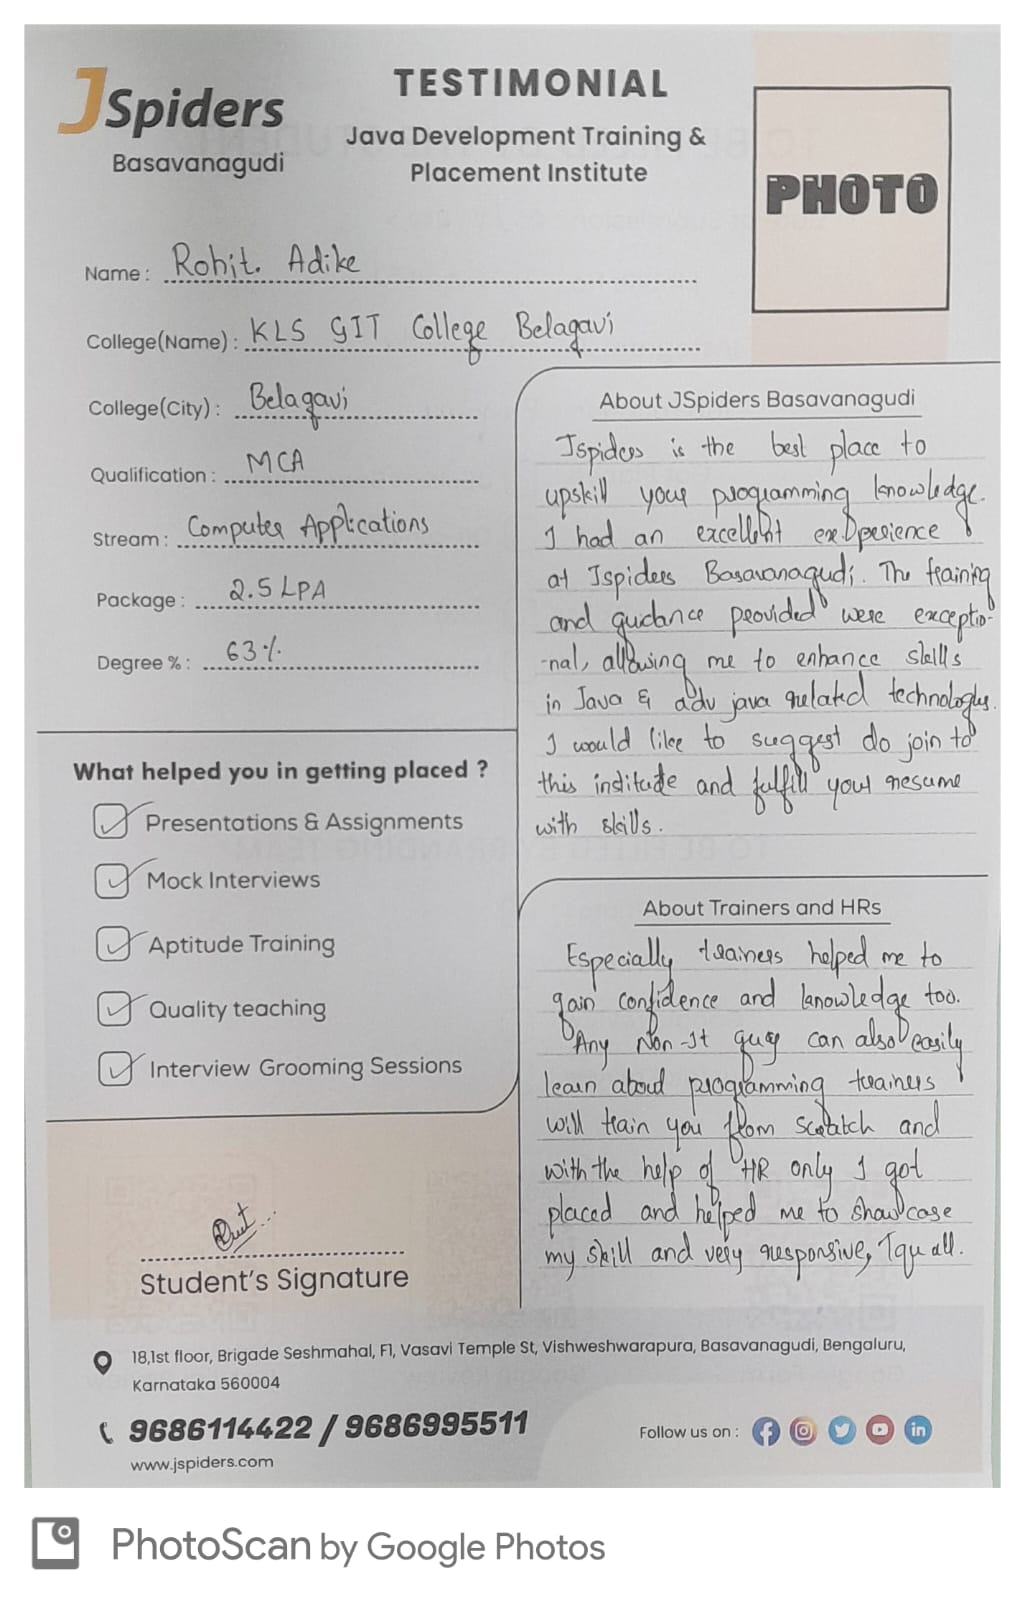 JSpiders
Basavanagudi
TESTIMONIAL
Java Development Training &
Placement Institute
PHOTO
Name : Rohit. Adike
College(Name) : KLS GIT College Belagavi
College(City) : Belagavi
Qualification : MCA
Stream : Computer Applications
Package : 2.5 LPA
Degree % : 63%
What helped you in getting placed ?
Presentations & Assignments
Mock Interviews
Aptitude Training
Quality teaching
Interview Grooming Sessions
Student's Signature
About JSpiders Basavanagudi
Jspiders is the best place to
upskill your programming knowledge.
I had an excellent experience
at Jspiders Basavanagudi. The training
and guidance provided were exceptio-
-nal, allowing me to enhance skills
in Java & adv java related technologies.
I would like to suggest do join to
this institute and fulfill your resume
with skills.
About Trainers and HRs
Especially trainers helped me to
gain confidence and knowledge too.
Any Non-It guy can also easily
learn about programming trainers
will train you from scratch and
with the help of HR only I got
placed and helped me to showcase
my skill and very responsive, Tqu all.
18,1st floor, Brigade Seshmahal, F1, Vasavi Temple St, Vishweshwarapura, Basavanagudi, Bengaluru,
Karnataka 560004
9686114422 / 9686995511
www.jspiders.com
Follow us on :
PhotoScan by Google Photos